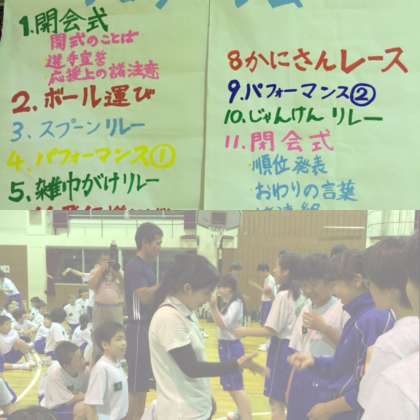 1.開会式
開式のことば
選手宣誓
応援上の諸注意
2.ボール運び
3.スプーンリレー
4.パフォーマンス①
5.雑巾がけリレー
8かにさんレース
9.パフォーマンス②
10.じゃんけんリレー
11.閉会式
順位発表
おわりの言葉